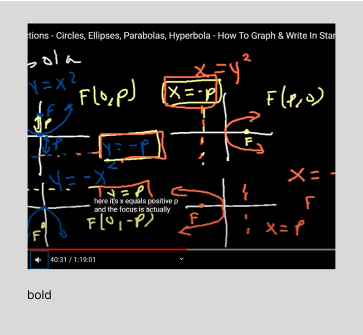 ctions - Circles, Ellipses, Parabolas, Hyperbola - How To Graph & Write In Star
bola
Y=X²
F(0,P)
P
P
Y=-P
X=y²
X=-P
F(P,0)
F
Y=-X²
Y=P
here it's x equals positive p
and the focus is actually
F(0,-P)
F
F
X=P
X=-
F
40:31 / 1:19:01
bold